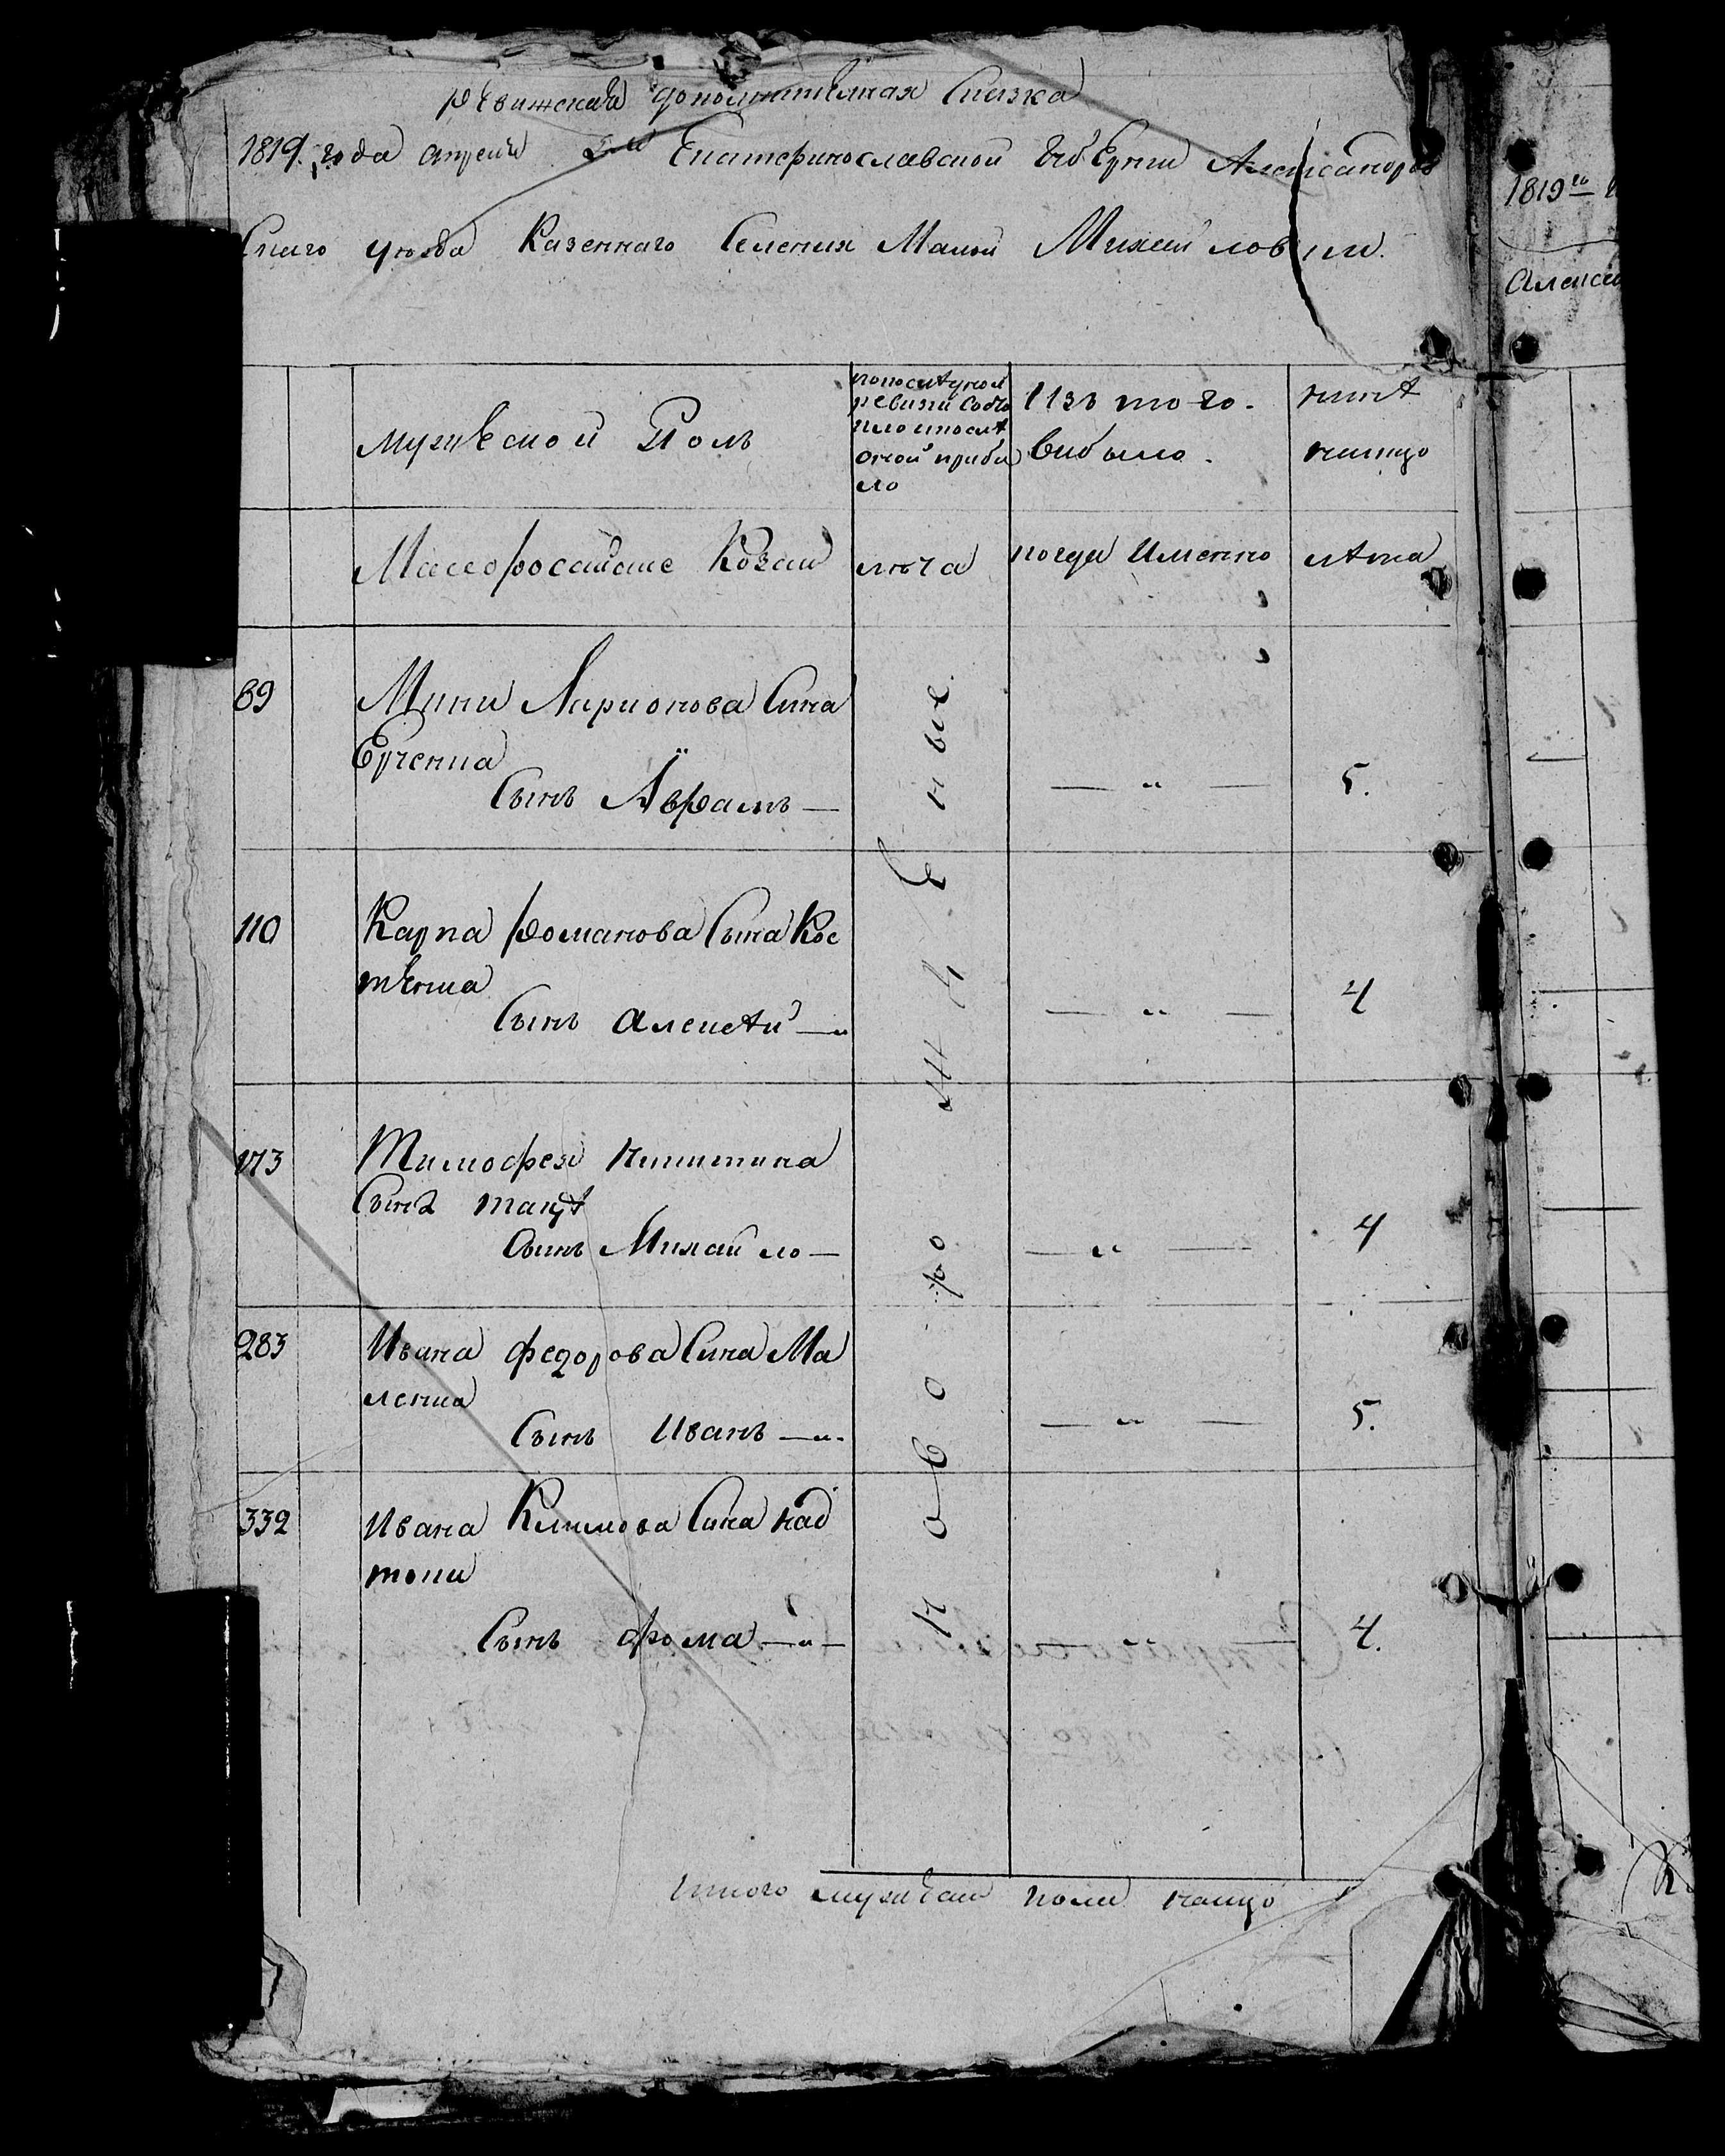 ревижская дополнителная Сказка
1819. года апреля Екатеринославской Губернии Александров
скаго уезда Казеннаго Селения Малой Михайловки.
мужеской Полъ
по последней
ревизии состо
яло и после
оной прибы
ло
Изъ того
выбыло
ныне
налицо
Малоросийские Козаки
лета
когда Именно
лета
новорожденные
89
Мини Ларионова Сина
Ерченка
Сынъ Аврамъ —
— „ —
5.
110
Карпа романова Сына Кос
тенка
Сынъ Алексей — „
— „ —
4
173
Тимофея никитина
Сына
Сынъ Михайло —
— „ —
4
283
Ивана федорова Сина Ма
ленка
Сынъ Иванъ — „ -
— „ —
5.
332
Ивана Климова Сина над
топи
Сынъ фома — „ —
4.
итого мужеска пола налицо
1819го
Алекса